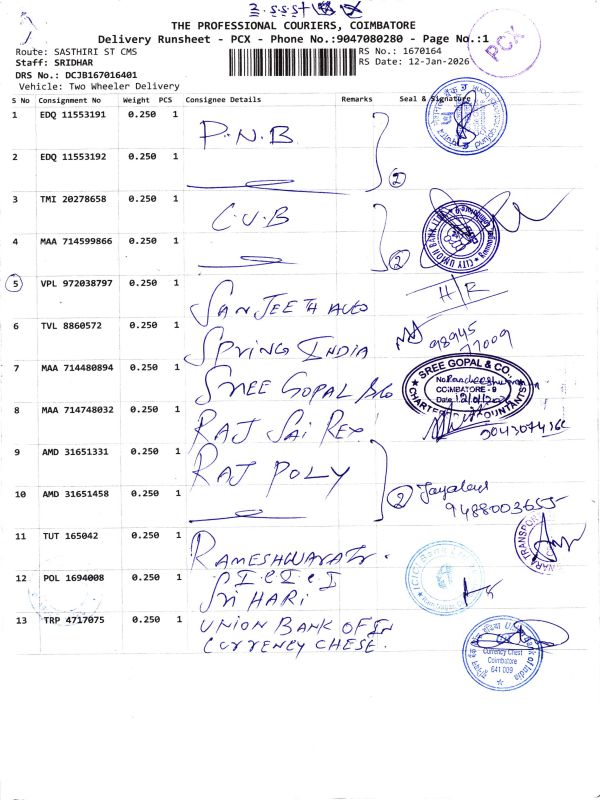 THE PROFESSIONAL COURIERS, COIMBATORE
Delivery Runsheet - PCX - Phone No.:9047080280 - Page No.:1
PCX
Route: SASTHIRI ST CMS
RS No.: 1670164
Staff: SRIDHAR
RS Date: 12-Jan-2026
DRS No.: DCJB167016401
Vehicle: Two Wheeler Delivery
S No Consignment No Weight PCS Consignee Details Remarks Seal & Signature
1 EDQ 11553191 0.250 1 P.N.B
2 EDQ 11553192 0.250 1
2
3 TMI 20278658 0.250 1 C.U.B
4 MAA 714599866 0.250 1
2
CITY UNION BANK LTD
5 VPL 972038797 0.250 1 SANJEETH AUTO H/R
6 TVL 8860572 0.250 1 SPRING INDIA 98945 77009
7 MAA 714480894 0.250 1 SREE GOPAL &CO
SREE GOPAL & CO.,
COIMBATORE - 9
Date
CHARTERED ACCOUNTANTS
8 MAA 714748032 0.250 1 RAJ SAI REX
9 AMD 31651331 0.250 1 RAJ POLY
10 AMD 31651458 0.250 1
2 Jayalaxi
9488003655
11 TUT 165042 0.250 1 RAMESHWARA Tr.
ICICI Bank
12 POL 1694008 0.250 1 I C I C I
SRI HARI
13 TRP 4717075 0.250 1 UNION BANK OF IN
CURRENCY CHESE.
Union Bank of India
Currency Chest
Coimbatore
641 009